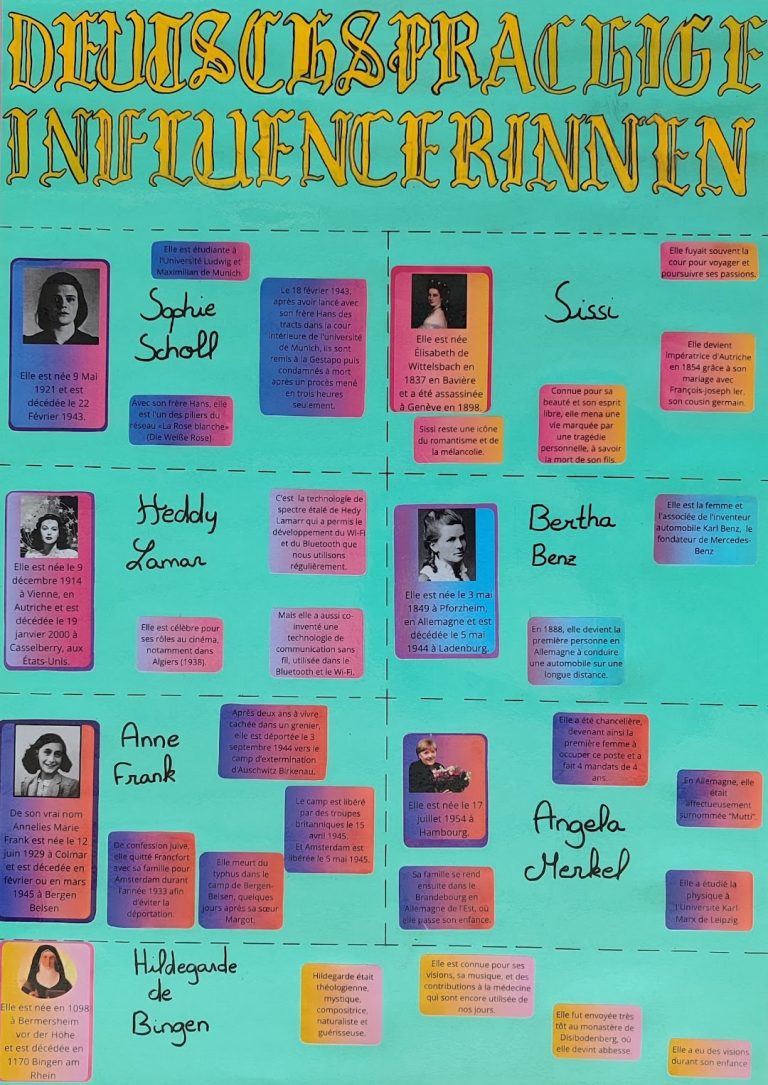 DEUTSCHSPRACHIGE
INFLUENCERINNEN
Elle est étudiante à
l'Université Ludwig et
Maximilian de Munich.
Sophie
Scholl
Elle est née 9 Mai
1921 et est
décédée le 22
Février 1943.
Le 18 février 1943,
après avoir lancé avec
son frère Hans des
tracts dans la cour
intérieure de l'université
de Munich, ils sont
remis à la Gestapo puis
condamnés à mort
après un procès mené
en trois heures
seulement.
Avec son frère Hans, elle
est l'un des piliers du
réseau «La Rose blanche»
(Die Weiße Rose).
Sissi
Elle fuyait souvent la
cour pour voyager et
poursuivre ses passions.
Elle est née
Élisabeth de
Wittelsbach en
1837 en Bavière
et a été assassinée
à Genève en 1898.
Elle devient
impératrice d'Autriche
en 1854 grâce à son
mariage avec
François-Joseph Ier,
son cousin germain.
Connue pour sa
beauté et son esprit
libre, elle mena une
vie marquée par
une tragédie
personnelle, à savoir
la mort de son fils.
Sissi reste une icône
du romantisme et de
la mélancolie.
Heddy
Lamar
Elle est née le 9
décembre 1914
à Vienne, en
Autriche et est
décédée le 19
janvier 2000 à
Casselberry, aux
États-Unis.
C'est la technologie de
spectre étalé de Hedy
Lamarr qui a permis le
développement du Wi-Fi
et du Bluetooth que
nous utilisons
régulièrement.
Elle est célèbre pour
ses rôles au cinéma,
notamment dans
Algiers (1938).
Mais elle a aussi co-
inventé une
technologie de
communication sans
fil, utilisée dans le
Bluetooth et le Wi-Fi.
Bertha
Benz
Elle est la femme et
l'associée de l'inventeur
automobile Karl Benz, le
fondateur de Mercedes-
Benz
Elle est née le 3 mai
1849 à Pforzheim,
en Allemagne et est
décédée le 5 mai
1944 à Ladenburg.
En 1888, elle devient la
première personne en
Allemagne à conduire
une automobile sur une
longue distance.
Anne
Frank
Après deux ans à vivre
cachée dans un grenier,
elle est déportée le 3
septembre 1944 vers le
camp d'extermination
d'Auschwitz Birkenau.
De son vrai nom
Annelies Marie
Frank est née le 12
juin 1929 à Colmar
et est décedée en
février ou en mars
1945 à Bergen
Belsen
Le camp est libéré
par des troupes
britanniques le 15
avril 1945.
Et Amsterdam est
libérée le 5 mai 1945.
De confession Juive,
elle quitté Francfort
avec sa famille pour
Amsterdam durant
l'année 1933 afin
d'éviter la
déportation.
Elle meurt du
typhus dans le
camp de Bergen-
Belsen, quelques
jours après sa sœur
Margot.
Angela
Merkel
Elle a été chancelière,
devenant ainsi la
première femme à
occuper ce poste et a
fait 4 mandats de 4
ans.
Elle est née le 17
juillet 1954 à
Hambourg.
En Allemagne, elle
était
affectueusement
surnommée "Mutti".
Sa famille se rend
ensuite dans le
Brandebourg en
Allemagne de l'Est, où
elle passe son enfance.
Elle a étudié la
physique à
l'Université Karl-
Marx de Leipzig
Hildegarde
de
Bingen
Elle est née en 1098
à Bermersheim
vor der Höhe
et est décédée en
1170 Bingen am
Rhein
Hildegarde était
théologienne,
mystique,
compositrice,
naturaliste et
guérisseuse.
Elle est connue pour ses
visions, sa musique, et des
contributions à la médecine
qui sont encore utilisée de
nos jours.
Elle fut envoyée très
tôt au monastère de
Disibodenberg, où
elle devint abbesse.
Elle a eu des visions
durant son enfance